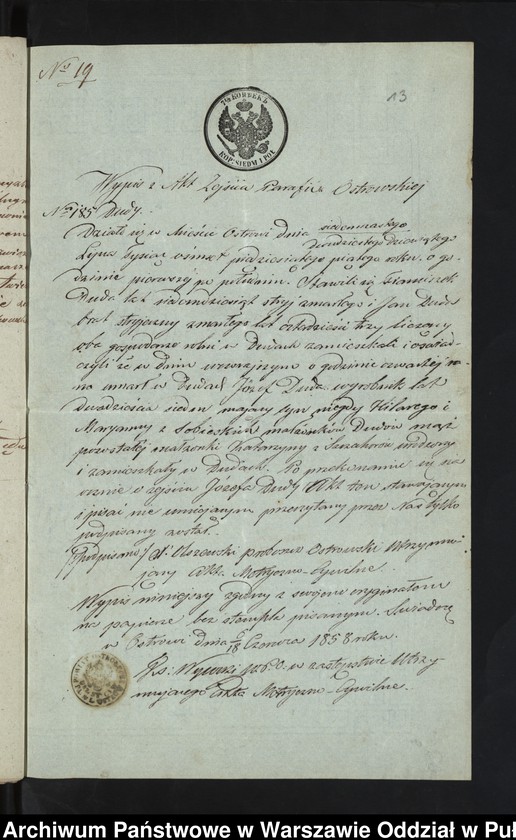 No 19
13
7½ KOPEEKЪ
KOP. SIEDM I PÓŁ
Wypis z Akt Zejścia Parafii Ostrowskiej
No 185 Dudy.
Działo się w Mieście Ostrowi dnia siedemnastego
dwudziestego dziewiątego
Lipca tysiąc osmset piędziesiątego piątego roku, o go-
dzinie pierwszej po południu. Stawili się Franciszek
Duda lat siedmdziesiąt stryj zmarłego i Jan Duda
brat stryjeczny zmarłego lat czterdzieści trzy liczący
oba gospodarze rolni w Dudach zamieszkali i oświad-
czyli że w dniu wczorajszym o godzinie czwartej z ra-
na umarł w Dudach Józef Duda wyrobnik lat
dwadzieścia siedem mający syn niegdy Hilarego i
Maryanny z Sobieskich małżonków Dudów
pozostałej małżonki Katarzyny z
i zamieszkały w Dudach. Po przekonaniu się na-
ocznie o zejściu Józefa Dudy Akt ten stawającym
i pisać nie umiejącym przeczytany przez Nas tylko
podpisany został.
(Podpisano) Proboszcz Ostrowski Utrzymu-
jący Akta Metryczno-Cywilne.
Wypis niniejszy zgodny z swoim oryginałem
na papierze bez stempla pisanym. Świadczę
w Ostrowi dnia 6/18 Czerwca 1858 roku.
Ks: w zastępstwie Utrzy-
mującego Akta Metryczno-Cywilne.
Archiwum Państwowe w Warszawie Oddział w Puł